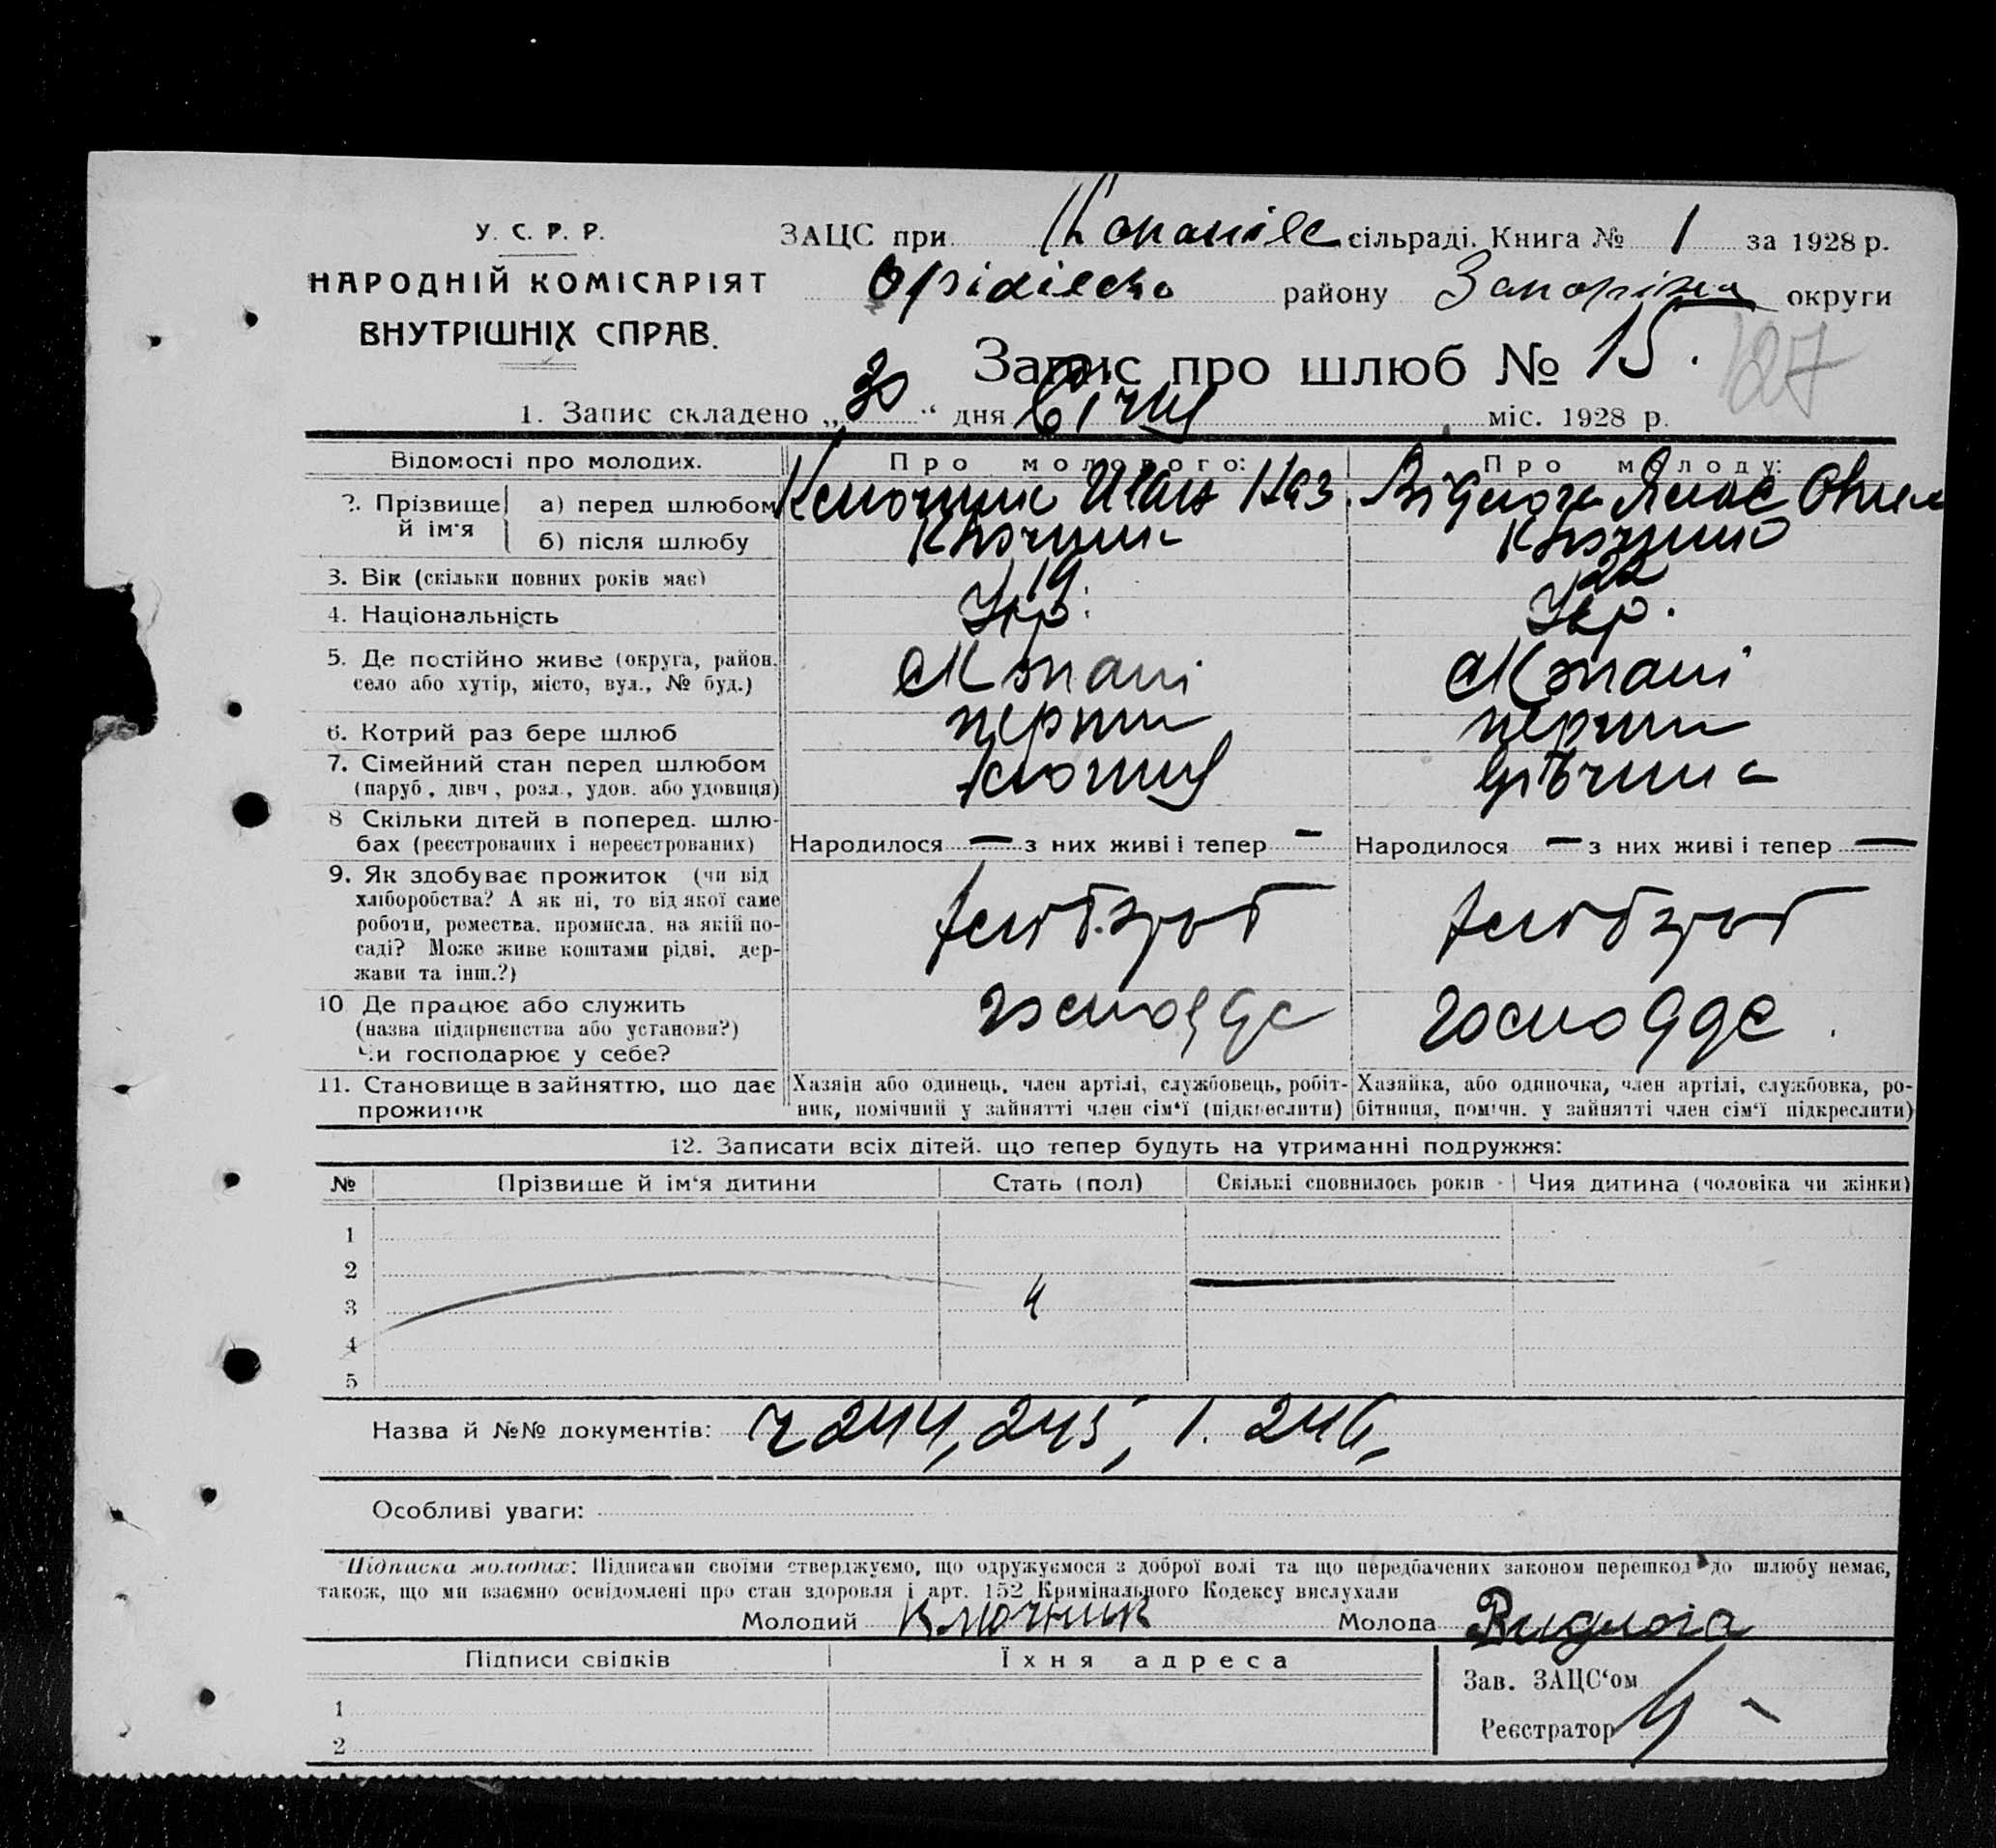 У. С. Р. Р.
НАРОДНІЙ КОМІСАРІЯТ
ВНУТРІШНІХ СПРАВ.
ЗАЦС при сільраді. Книга № 1 за 1928 р.
району Запоріжж округи
Запис про шлюб № 15.
127
1. Запис складено „30“ дня Січня міс. 1928 р.
Відомості про молодих. Про молодого: Про молоду:
2. Прізвище й ім'я
а) перед шлюбом Ключник Иван Наз.
б) після шлюбу Ключник
3. Вік (скільки повних років має) 19 22
4. Національність Укр. Укр.
5. Де постійно живе (округа, район, село або хутір, місто, вул., № буд.)
6. Котрий раз бере шлюб перши перши
7. Сімейний стан перед шлюбом (паруб., дівч., розл., удов. або удовиця) дівчина
8 Скільки дітей в поперед. шлюбах (реєстрованих і нереєстрованих) Народилося — з них живі і тепер — Народилося — з них живі і тепер —
9. Як здобуває прожиток (чи від хліборобства? А як ні, то від якої саме роботи, ремества, промисла, на якій посаді? Може живе коштами рідні, держави та інш.?) хлібороб хлібороб
10 Де працює або служить (назва підприєнства або установи?) Чи господарює у себе?
11. Становище в зайняттю, що дає прожиток
Хазяін або одинець, член артілі, службовець, робітник, помічний у зайнятті член сім'ї (підкреслити)
Хазяйка, або одиночка, член артілі, службовка, робітниця, помічн. у зайнятті член сім'ї підкреслити)
12. Записати всіх дітей, що тепер будуть на утриманні подружжя:
№ Прізвище й ім'я дитини Стать (пол) Скількі сповнилось років Чия дитина (чоловіка чи жінки)
1
2
3
4
5
Назва й №№ документів: 244, 245, 1. 246,
Особливі уваги:
Підписка молодих: Підписами своїми стверджуємо, що одружуємося з доброї волі та що передбачених законом перешкод до шлюбу немає,
також, що ми взаємно освідомлені про стан здоровля і арт. 152 Кримінального Кодексу вислухали
Молодий Ключник Молода
Підписи свідків Їхня адреса
Зав. ЗАЦС'ом
1
Реєстратор
2